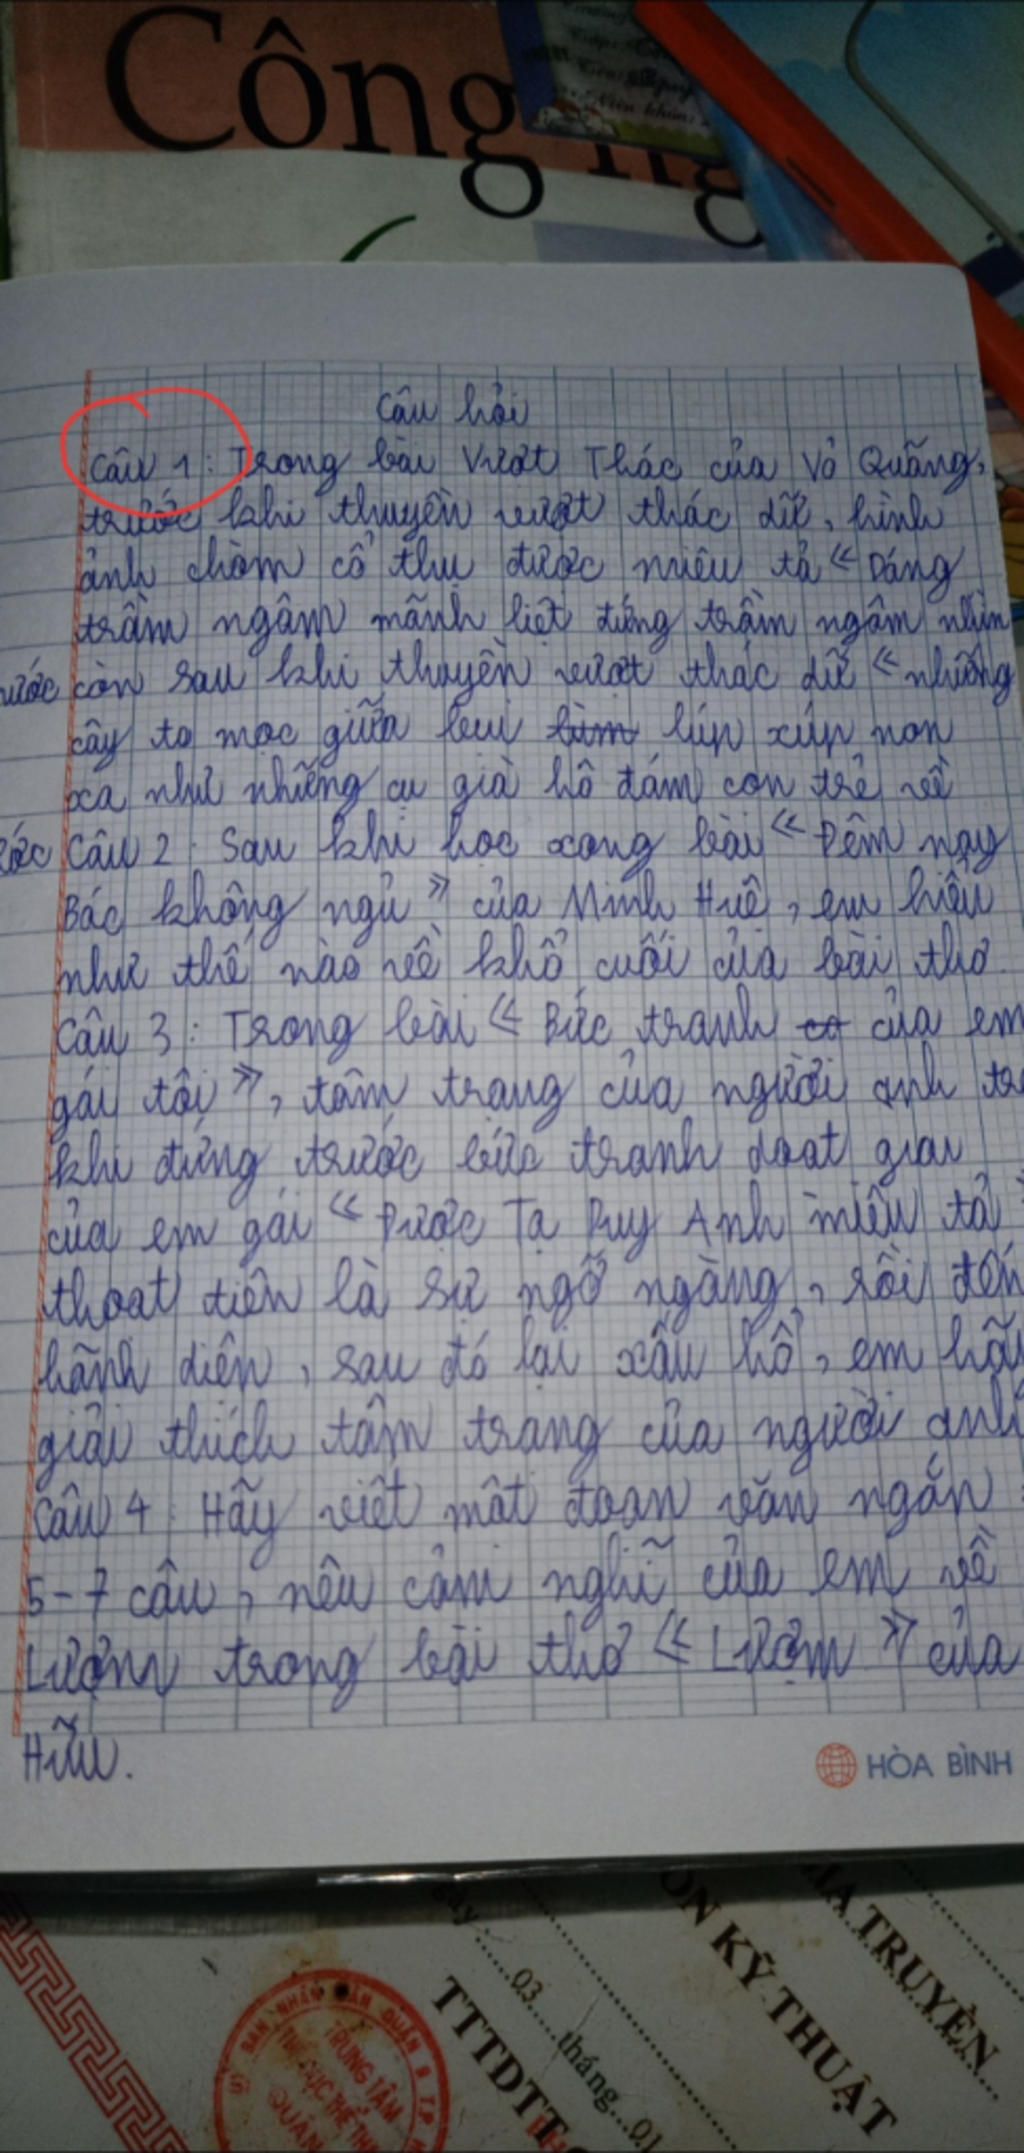 Công ng
Câu hỏi
Câu 1: Trong bài Vượt Thác của Võ Quãng,
trước khi thuyền vượt thác dữ, hình
ảnh chòm cổ thụ được miêu tả « Dáng
trầm ngâm mãnh liệt đứng trầm ngâm nhìn
nước còn sau khi thuyền vượt thác dữ « những
cây to mọc giữa bụi lúp xúp non
xa như những cụ già hô đám con trẻ về
Câu 2: Sau khi học xong bài « Đêm nay
Bác không ngủ » của Minh Huê, em hiểu
như thế nào về khổ cuối của bài thơ.
Câu 3: Trong bài « Bức tranh của em
gái tôi », tâm trạng của người anh
khi đứng trước bức tranh đoạt giải
của em gái « Được Tạ Duy Anh miêu tả
thoạt tiên là sự ngỡ ngàng, rồi đến
hãnh diện, sau đó lại xấu hổ, em hãy
giải thích tâm trạng của người anh
Câu 4: Hãy viết một đoạn văn ngắn
5-7 câu, nêu cảm nghĩ của em về
Lượm trong bài thơ « Lượm » của
Hữu.
HÒA BÌNH
GIA TRUYỀN
ÔN KỸ THUẬT
TTTDTT
03 tháng 01
TRUNG TÂM